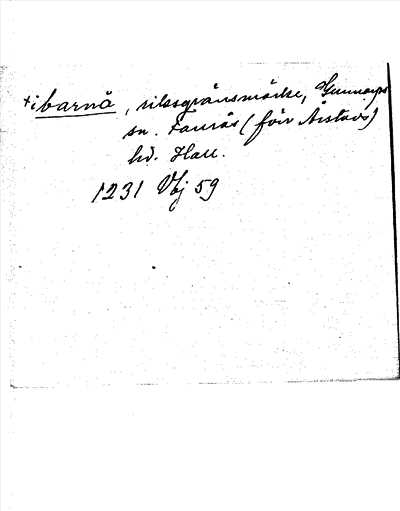 + i barnå, riksgränsmärke, Gunnarps
sn. Faurås (förr Årstads)
hd. Hall.
1231 Vbj 59